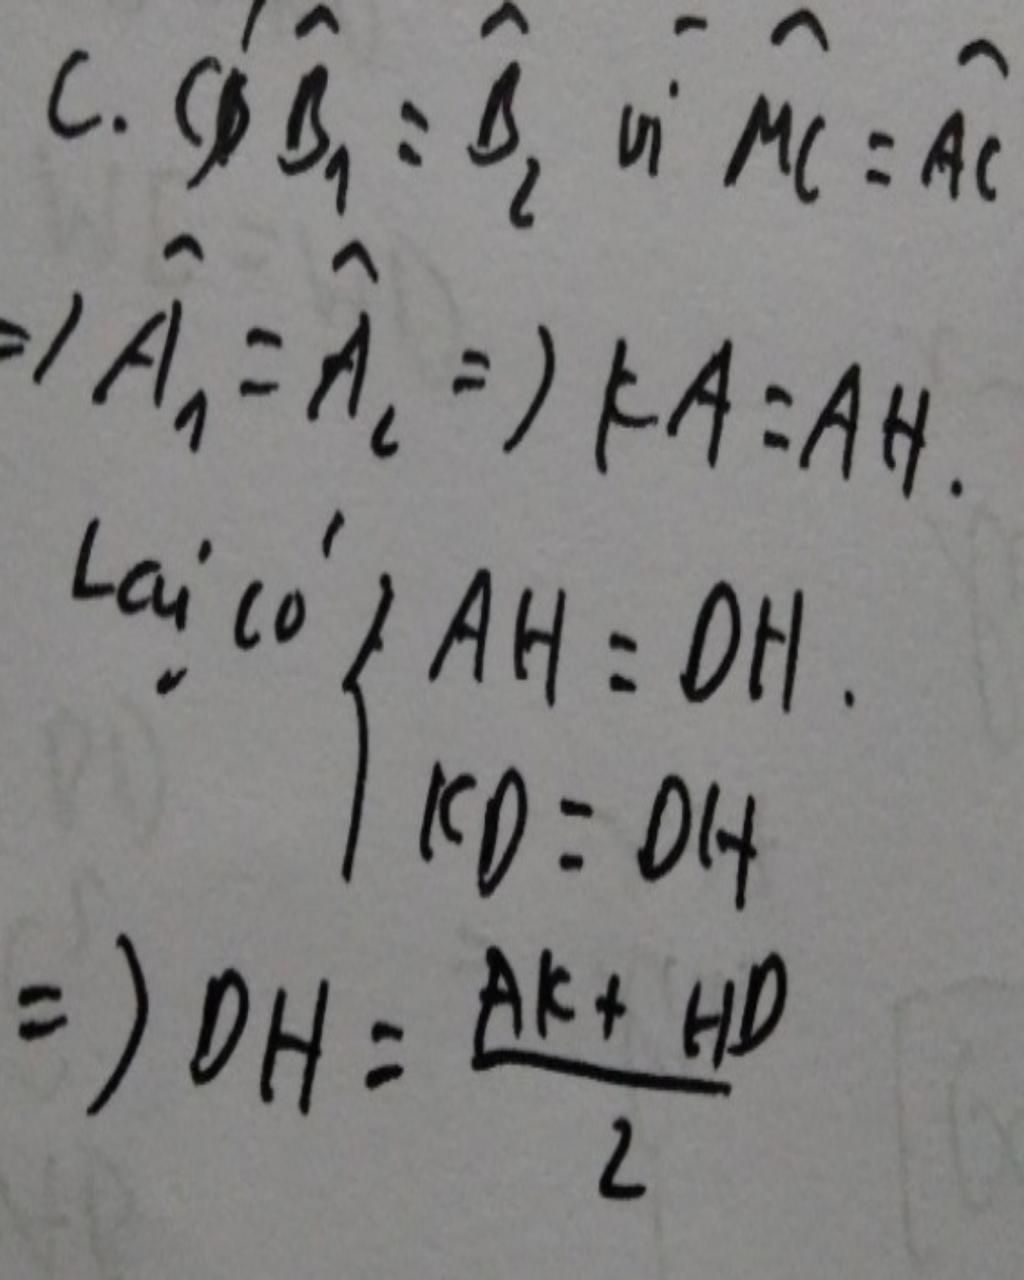 C. Có B̂₁ = B̂₂ vì M͡C = A͡C
=) Â₁ = Â₂ =) KA = AH.
Lại có { AH = DH.
KD = DH
=) DH = (AK + HD)/2